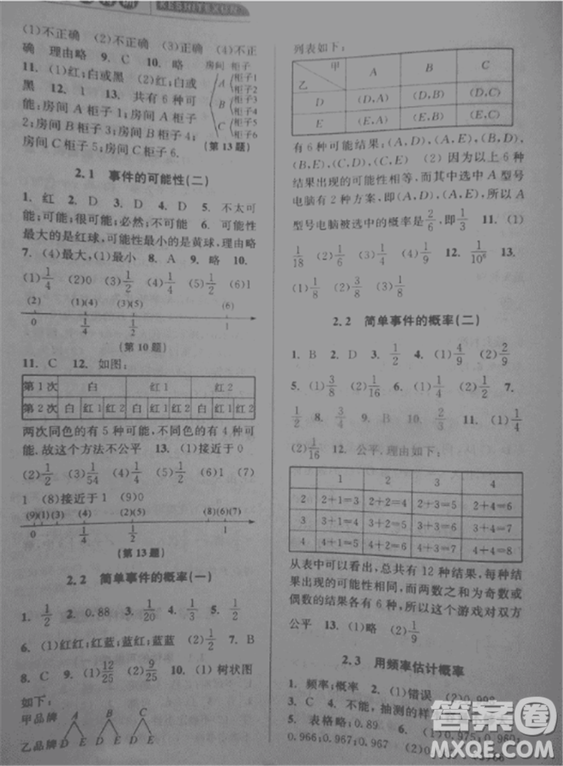 KESHITEXUN
(1)不正确 (2)不正确 (3)不正
确 理由略 9. C 10. C 房间 柜子
11. (1)红;白或黑 (2)红;白或
黑 12. 1 13. 共有 6 种可
能:房间 A 柜子 1;房间 A 柜子
2;房间 B 柜子 3;房间 B 柜子
4;房间 C 柜子 5;房间 C 柜子 6.
A B C
柜子1 柜子2 柜子3 柜子4 柜子5 柜子6
(第 13 题)
2.1 事件的可能性(二)
1. 红 2. D 3. D 4. D 5. 不太可
能;可能;很可能;必然;不可能 6. 可能性
最大的是红球,可能性最小的是黄球,理由略
7. (4)最大,(1)最小 8. A 9. 略 10.
(1) 1/4 (2)0 (3) 1/2 (4) 1/4 (5) 1/2 (6)1
(2) (1)(4) (3)(5) (6)
0 1/4 1/2 1
(第 10 题)
11. C 12. 如图:
第 1 次 白 红 1 红 2
第 2 次 白 红 1 红 2 白 红 1 红 2 白 红 1 红 2
两次同色的有 5 种可能,不同色的有 4 种可
能,故这个方法不公平 13. (1)接近于 0
(2) 1/2 (3) 1/54 (4) 1/4 (5) 1/2 (6)1 (7)
1 (8)1 (9)接近于 0
0 1/4 1/2 1
(第 13 题)
2.2 简单事件的概率(一)
1. B 2. 0.88 3. 1/20 4. 1/3 5. 1/2
6. (1)红红;红蓝;蓝蓝 (2) 1/2 7. B
8. D 9. (1) 12/25 (2) 9/25 10. (1)树状图
如下:
甲品牌 A B C
乙品牌 D E D E D E
列表如下:
甲 乙 A B C
D (D,A) (D,B) (D,C)
E (E,A) (E,B) (E,C)
有 6 种可能结果:(A,D),(A,E),(B,D),
(B,E),(C,D),(C,E) (2) 因为以上结
果出现的可能性相等,而其中选中 A 型号
电脑有 2 种方案,即(A,D),(A,E),所以 A
型号电脑被选中的概率是 2/6,即 1/3 11. (1)
1/18 (2) 1/6 (3) 1/4 (4) 1/9 12. 1/10⁶ 13.
(1) 3/8 (2) 3/8
2.2 简单事件的概率(二)
1. B 2. D 3. 1/2 4. (1) 4/9 (2) 2/9
5. (1) 1/2 (2) 3/16 6. (1) 1/3 (2) 1/2
7. 1/3 8. 2/3 9. 3/8 10. B 11. (1) 1/4
(2) 1/16 12. 公平,理由如下:
1 2 3 4
2 2+1=3 2+2=4 2+3=5 2+4=6
3 3+1=4 3+2=5 3+3=6 3+4=7
4 4+1=5 4+2=6 4+3=7 4+4=8
从表中可以看出,总共有 12 种结果,每种结
果出现的可能性相同,而两数和为奇数或
偶数的结果各有 6 种,所以这个游戏对双方
公平 13. (1)略 (2) 1/9
2.3 用频率估计概率
1. 频率;概率 2. (1)错误
3. C 4. 不能,抽测的样
5. 表格略;0.89
0.966;0.967;0.966
答案圈
MXQE.COM